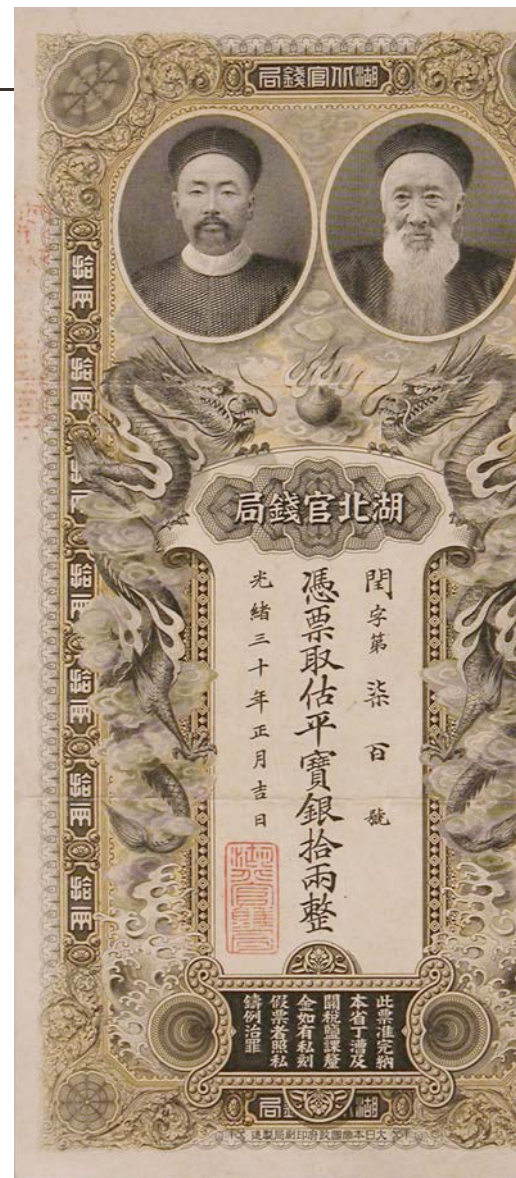 湖北官錢局
湖北官錢局
閏字第柒百號
憑票取估平寶銀拾兩整
光緒三十年正月吉日
此票准完納
本省丁漕及
關稅鹽課釐
金如有私刻
假票者照私
鑄例治罪
湖北官錢局
大日本帝國政府印刷局製造